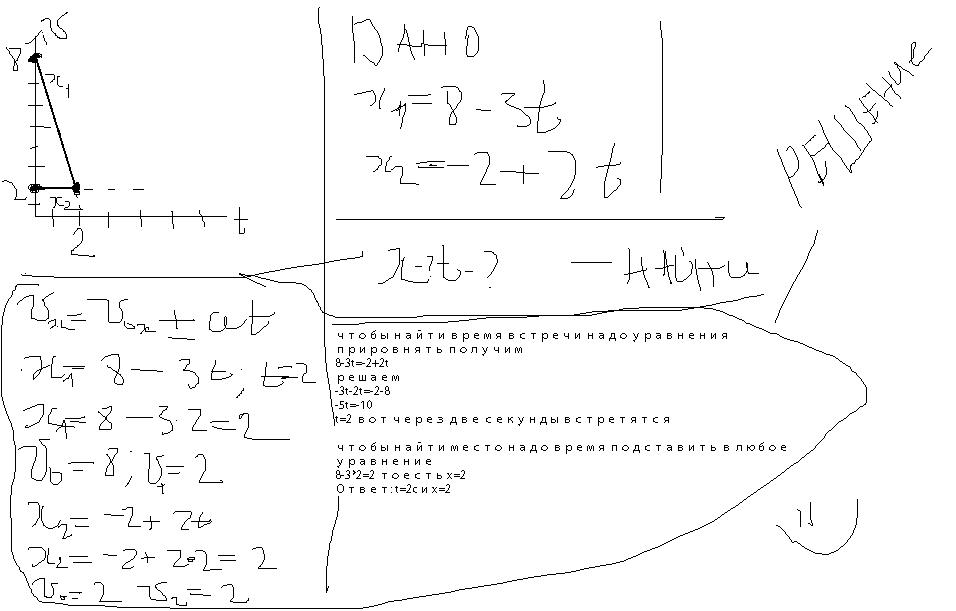 v
8
x₁
2
x₂
2
t
ДАНО
x₁=8-3t
x₂=-2+2t
x-?t-? - НАЙТИ
РЕШЕНИЕ
vₓ=v₀ₓ+at
x₁=8-3t; t=2
x₁=8-3·2=2
v₀=8; v₁=2
x₂=-2+2t
x₂=-2+2·2=2
v₀=2 v₂=2
чтобы найти время встречи надо уравнения
прировнять получим
8-3t=-2+2t
решаем
-3t-2t=-2-8
-5t=-10
t=2 вот через две секунды встретятся
чтобы найти место надо время подставить в любое
уравнение
8-3*2=2 то есть x=2
Ответ: t=2с и x=2